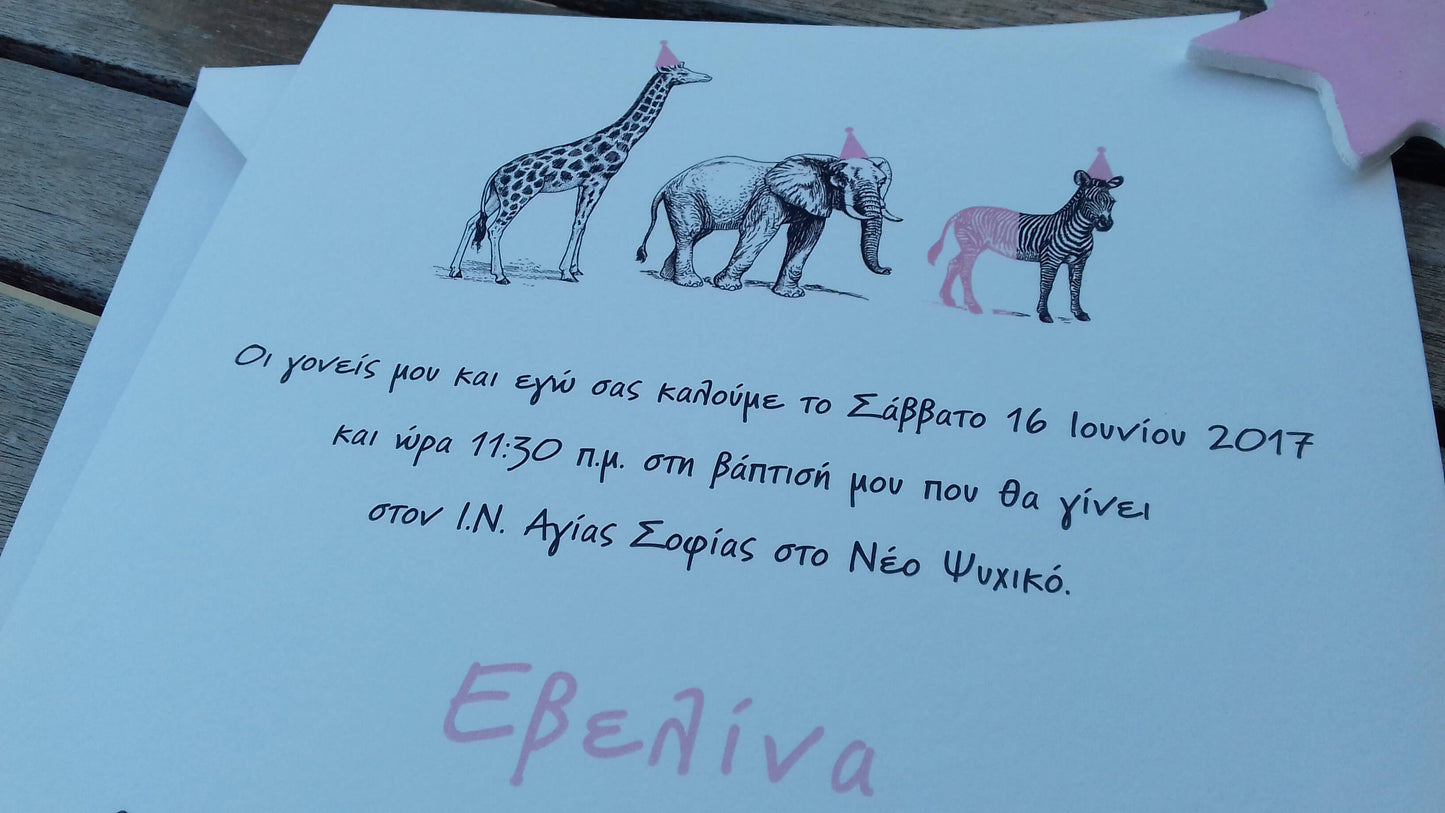 Οι γονείς μου και εγώ σας καλούμε το Σάββατο 16 Ιουνίου 2017
και ώρα 11:30 π.μ. στη βάπτισή μου που θα γίνει
στον Ι.Ν. Αγίας Σοφίας στο Νέο Ψυχικό.
Εβελίνα